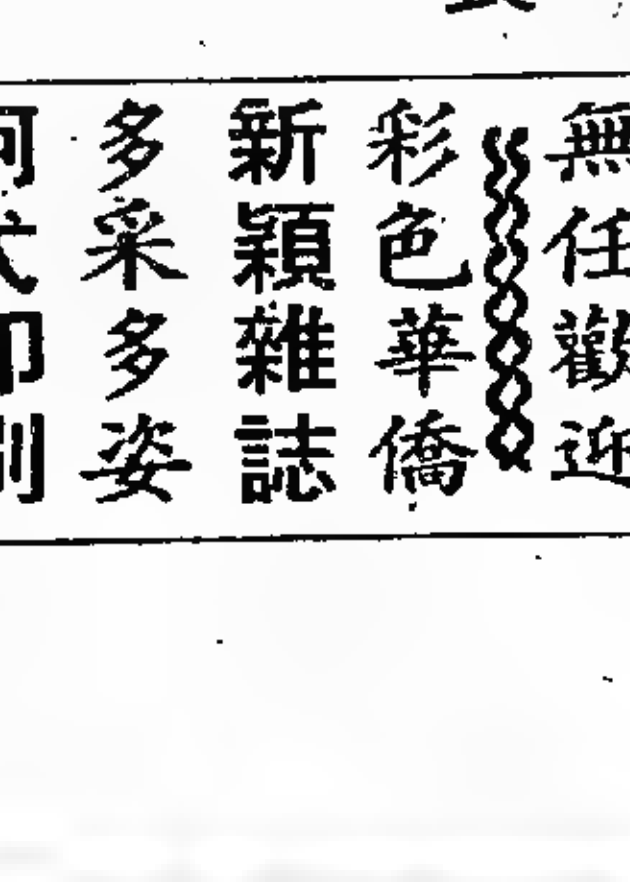 無任歡迎
彩色華僑
新穎雜誌
多采多姿